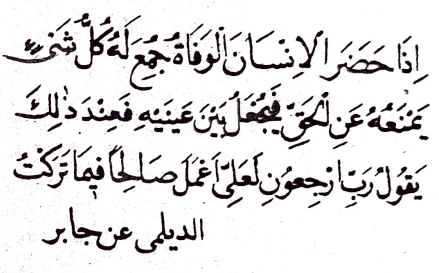 اِذَا حَضَرَ الْاِنْسَانَ الْوَفَاةُ جُمِعَ لَهُ كُلُّ شَىْءٍ
يَمْنَعُهُ عَنِ الْحَقِّ فَيُجْعَلُ بَيْنَ عَيْنَيْهِ فَعِنْدَ ذٰلِكَ
يَقُولُ رَبِّ ارْجِعُونِ لَعَلِّىٓ اَعْمَلُ صَالِحًا فِيمَا تَرَكْتُ
الديلمى عن جابر